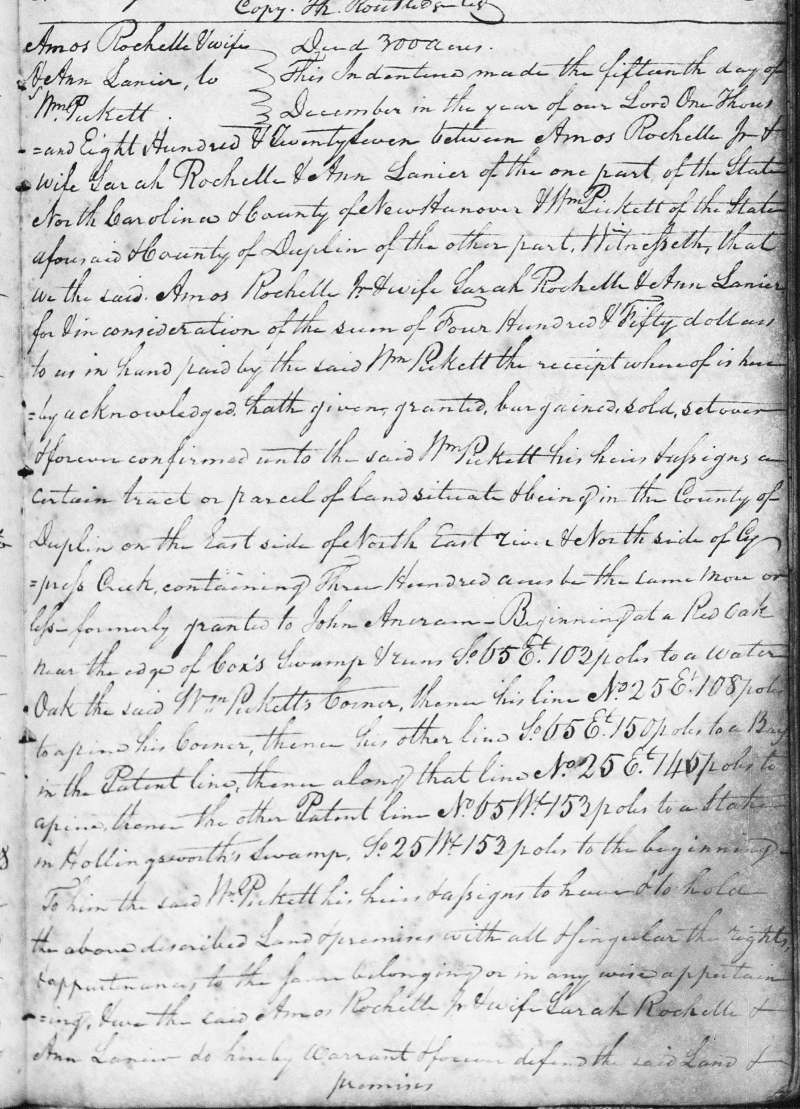 Copy. Th. Routledge
Amos Rochelle & wife Deed 300 acres.
& Ann Lanier, to This Indenture made the fifteenth day of
Wm Pickett. December in the year of our Lord One Thous
=and Eight Hundred & Twenty Seven between Amos Rochelle Jr &
wife Sarah Rochelle & Ann Lanier of the one part, of the State
North Carolina & County of New Hanover & Wm Pickett of the State
aforesaid & County of Duplin of the other part, Witnesseth, that
we the said Amos Rochelle Jr & wife Sarah Rochelle & Ann Lanier
for & in consideration of the sum of Four Hundred & Fifty dollars
to us in hand paid by the said Wm Pickett the receipt whereof is here
=by acknowledged, hath given, granted, bargained, sold, set over
& forever confirmed unto the said Wm Pickett his heirs & assigns a
certain tract or parcel of land situate & being in the County of
Duplin on the East side of North East river & North side of Cy
=press Creek, containing Three Hundred acres be the same more or
less formerly granted to John Ancram - Beginning at a Red Oak
near the edge of Cox's Swamp & runs So 65 Et. 102 poles to a water
Oak the said Wm Picketts Corner, thence his line No 25 Et. 108 poles
to a pine his Corner, thence his other line So 65 Et. 150 poles to a Bay
in the Patent line, thence along that line No 25 Et. 145 poles to
a pine, thence the other Patent line No 65 Wt. 153 poles to a Stake
in Hollingsworth's Swamp, So 25 Wt. 153 poles to the beginning -
To him the said Wm Pickett his heirs & assigns to have & to hold
the above described Land & premises with all & singular the rights,
& appurtenances to the same belonging or in any wise appertain
=ing, & we the said Amos Rochelle Jr & wife Sarah Rochelle &
Ann Lanier do hereby Warrant & forever defend the said Land &
premises